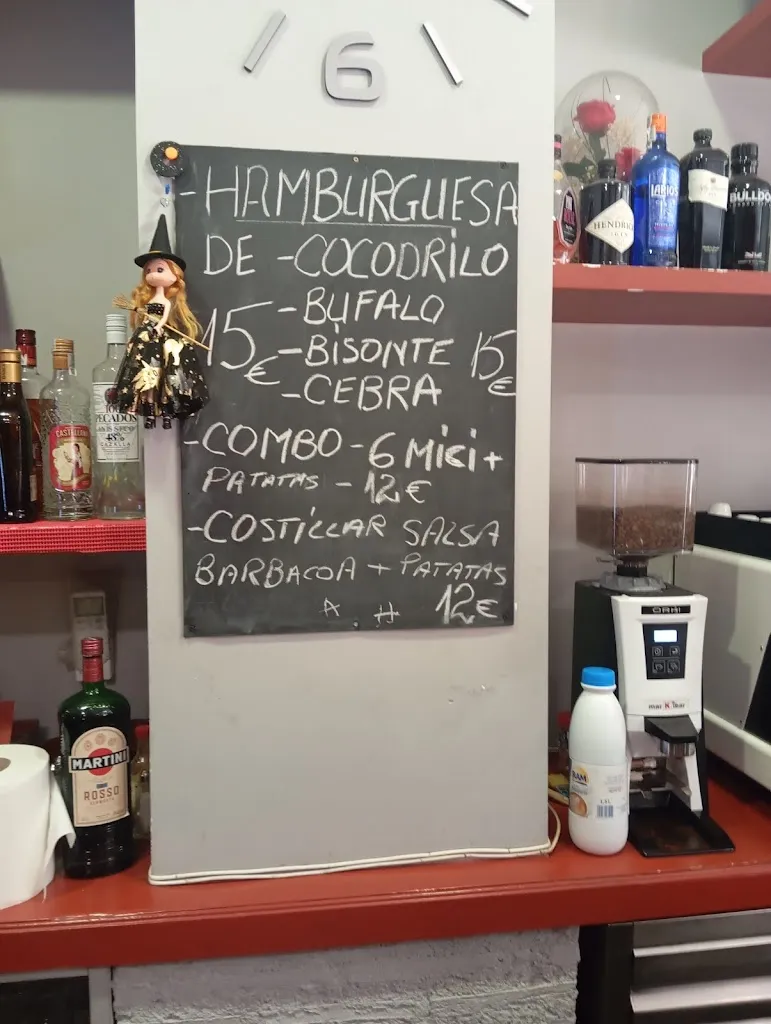 6
-HAMBURGUESA
DE -COCODRILO
-BUFALO
15€ -BISONTE 15€
-CEBRA
-COMBO-6 MICI +
PATATAS - 12€
-COSTILLAR SALSA
BARBACOA + PATATAS
12€
HENDRICK
GIN
LARIOS
BULLDO
PECADOS
48%
CAZALLA
MARTINI
ROSSO
ORHI
markibar
RAM